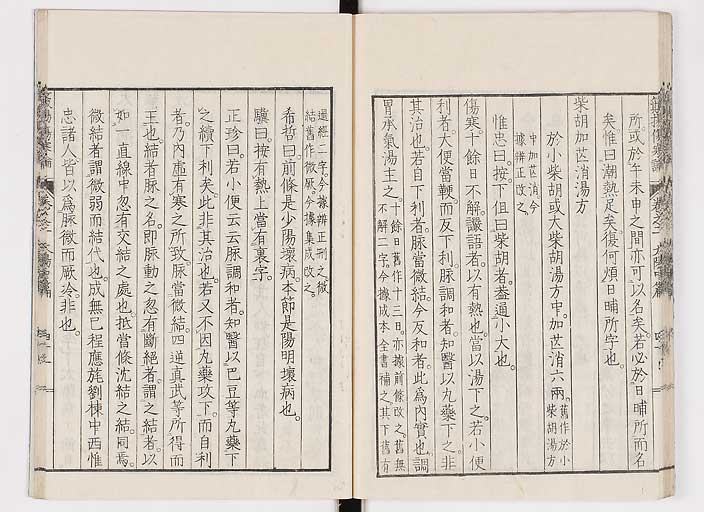 所。或於午未申之間。亦可以名矣。若必於日晡所而名
矣。惟曰潮熱足矣。復何煩日晡所字也。
柴胡加芒消湯方
於小柴胡或大柴胡湯方中。加芒消六兩。舊作於小柴胡湯方
中加芒消今據辨正改之。
惟忠曰。按下但曰柴胡者。蓋通小大也。
傷寒十餘日不解。讝語者。以有熱也。當以湯下之。若小便
利者。大便當鞕。而反下利。脈調和者。知醫以丸藥下之。非
其治也。若自下利者。脈當微結。今反和者。此爲内實也。調
胃承氣湯主之。十餘日舊作十三日。亦據前條改之。舊無不解二字。今據成本全書補之。其下舊有
過經二字。今據辨正刪之。微結舊作微厥。今據集成改之。
希哲曰。前條是少陽壞病。本節是陽明壞病也。
驥曰。按有熱上當有裏字。
正珍曰。若小便云云脈調和者。知醫以巴豆等丸藥下
之。續下利矣。此非其治也。若又不因丸藥攻下。而自利
者。乃内虛有寒之所致。脈當微結。四逆真武等所得而
主也。結者脈之名。即脈動之忽有斷絕者。謂之結者。以
如一直線中忽有交結之處也。抵當條沈結之結。同焉。
微結者。謂微弱而結代也。成無已程應旄劉棟中西惟
忠諸人。皆以爲脈微而厥冷非也。